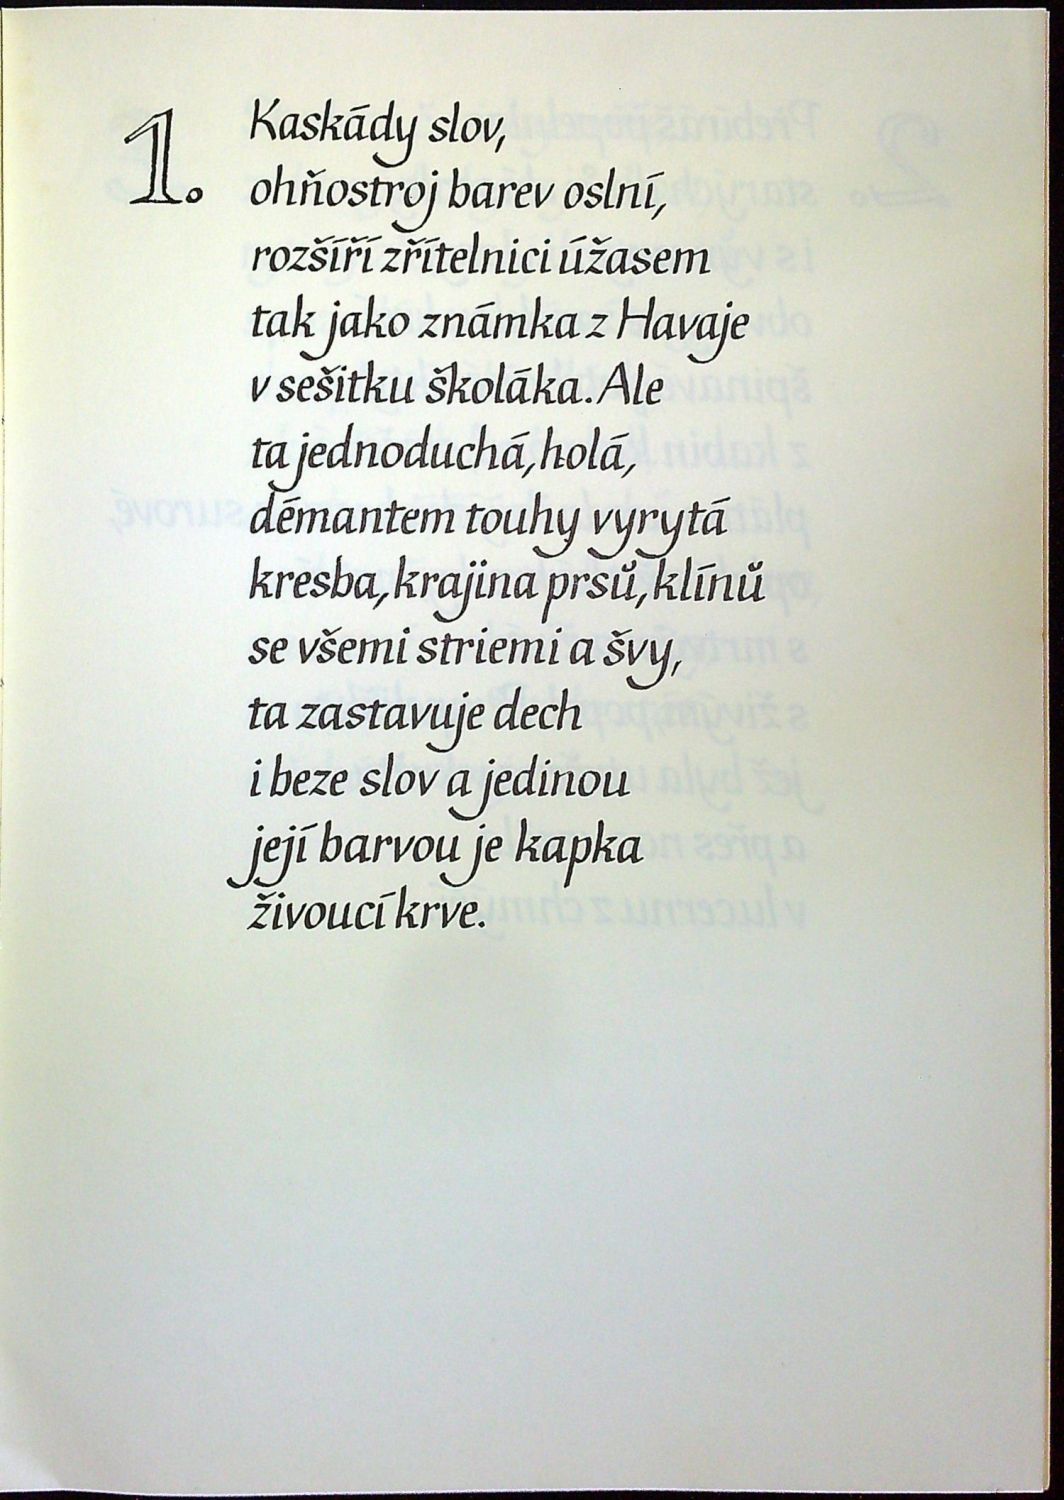 1.
Kaskády slov,
ohňostroj barev oslní,
rozšíří zřítelnici úžasem
tak jako známka z Havaje
v sešitku školáka. Ale
ta jednoduchá, holá,
démantem touhy vyrytá
kresba, krajina prsů, klínů
se všemi striemi a švy,
ta zastavuje dech
i beze slov a jedinou
její barvou je kapka
živoucí krve.